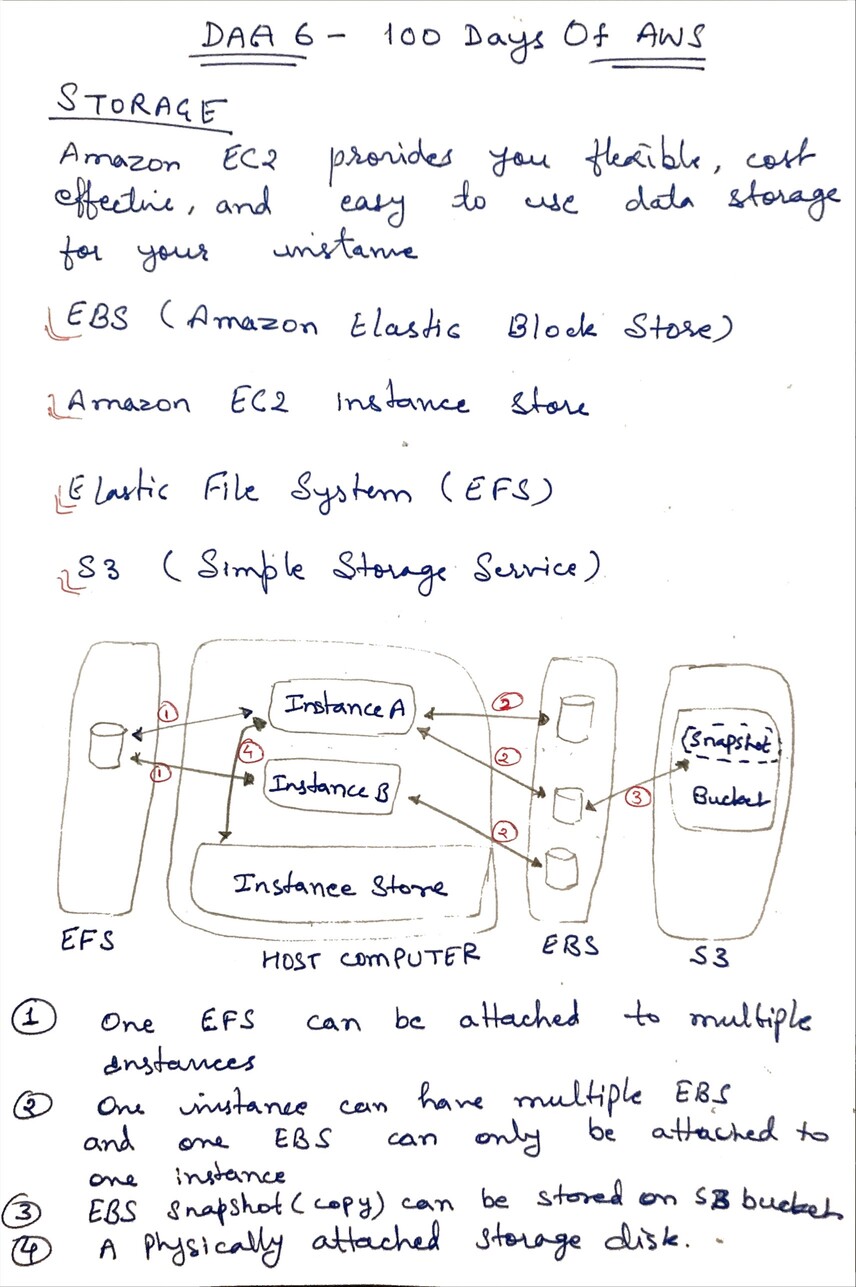 DAY 6 - 100 Days Of AWS
STORAGE
Amazon EC2 provides you flexible, cost
effective, and easy to use data storage
for your instance
EBS (Amazon Elastic Block Store)
Amazon EC2 instance store
Elastic File System (EFS)
S3 (Simple Storage Service)
Instance A
2
1
Snapshot
4
2
1
Instance B
3
Bucket
2
Instance Store
EFS
HOST COMPUTER
EBS
S3
1 One EFS can be attached to multiple
instances
2 One instance can have multiple EBS
and one EBS can only be attached to
one instance
3 EBS snapshot (copy) can be stored on S3 bucket
4 A Physically attached storage disk.